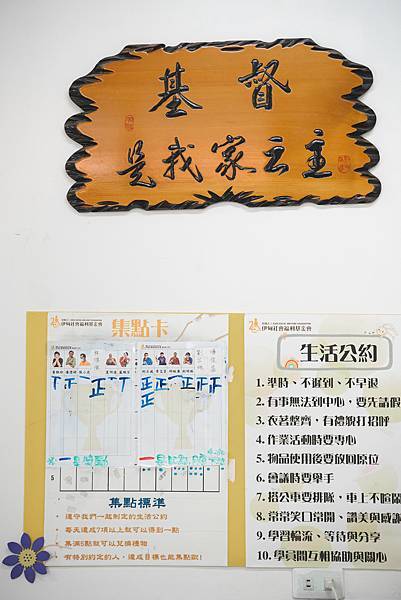 基督
是我家之主
伊甸社會福利基金會
集點卡
集點標準
遵守我們一起制定的生活公約
每天達成7項以上就可以得到一點
集滿5點就可以兌換禮物
有特別約定的人，達成目標也能集點歐!
伊甸社會福利基金會
生活公約
1. 準時、不遲到、不早退
2. 有事無法到中心，要先請假
3. 衣著整齊，有禮貌打招呼
4. 作業活動時要專心
5. 物品使用後要放回原位
6. 會議時要舉手
7. 搭公車要排隊，車上不喧鬧
8. 常常笑口常開、讚美與感謝
9. 學習輪流、等待與分享
10. 學員間互相協助與關心